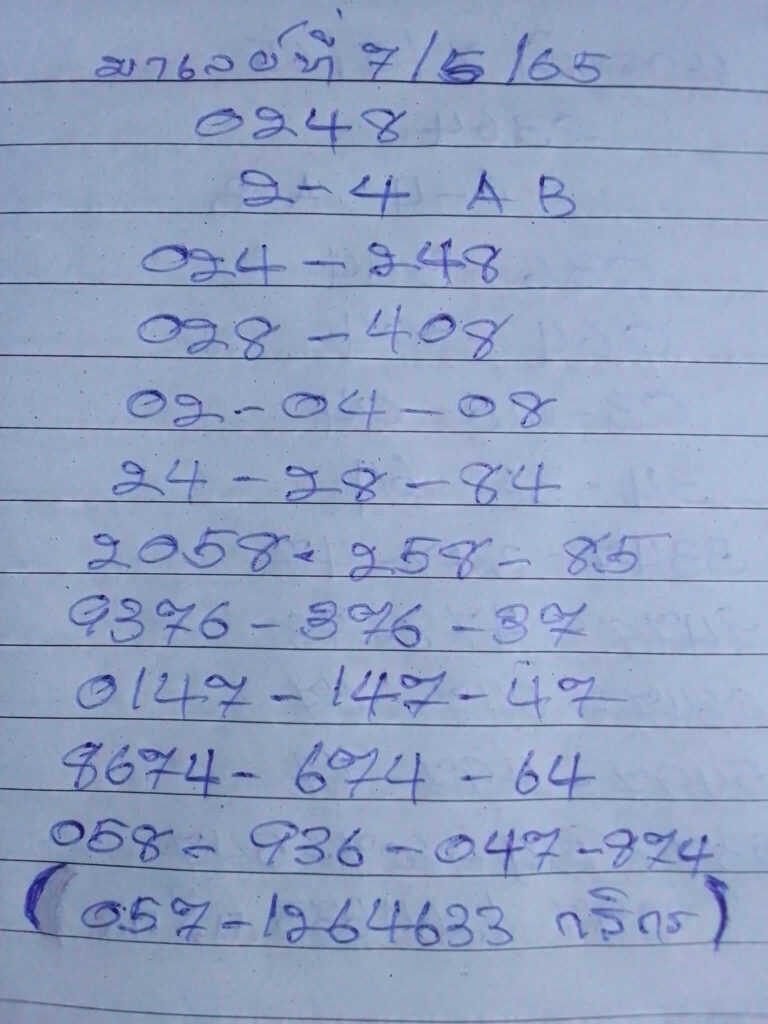 มาเลย์ที่ 7/5/65
0248
2-4 A B
024-248
028-408
02-04-08
24-28-84
2058-258-85
9376-376-37
0147-147-47
8674-674-64
058-936-047-874
(057-1264633